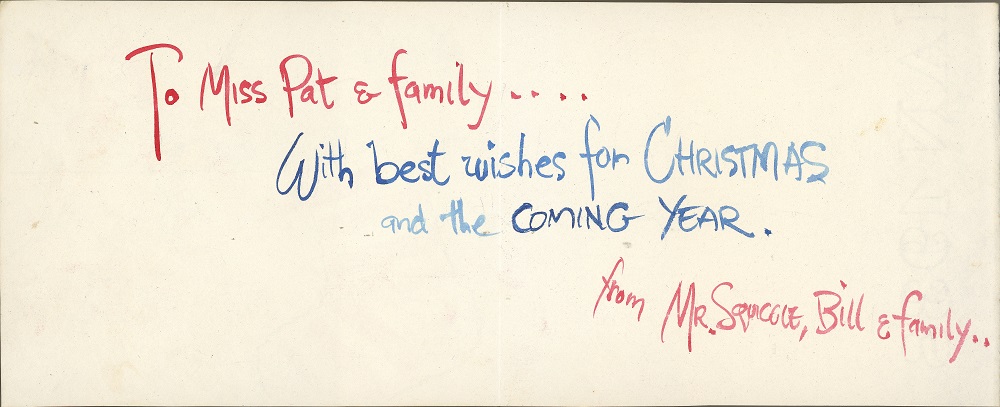 To Miss Pat & family....
With best wishes for CHRISTMAS
and the COMING YEAR.
from MR. SQUIGGLE, Bill & family..